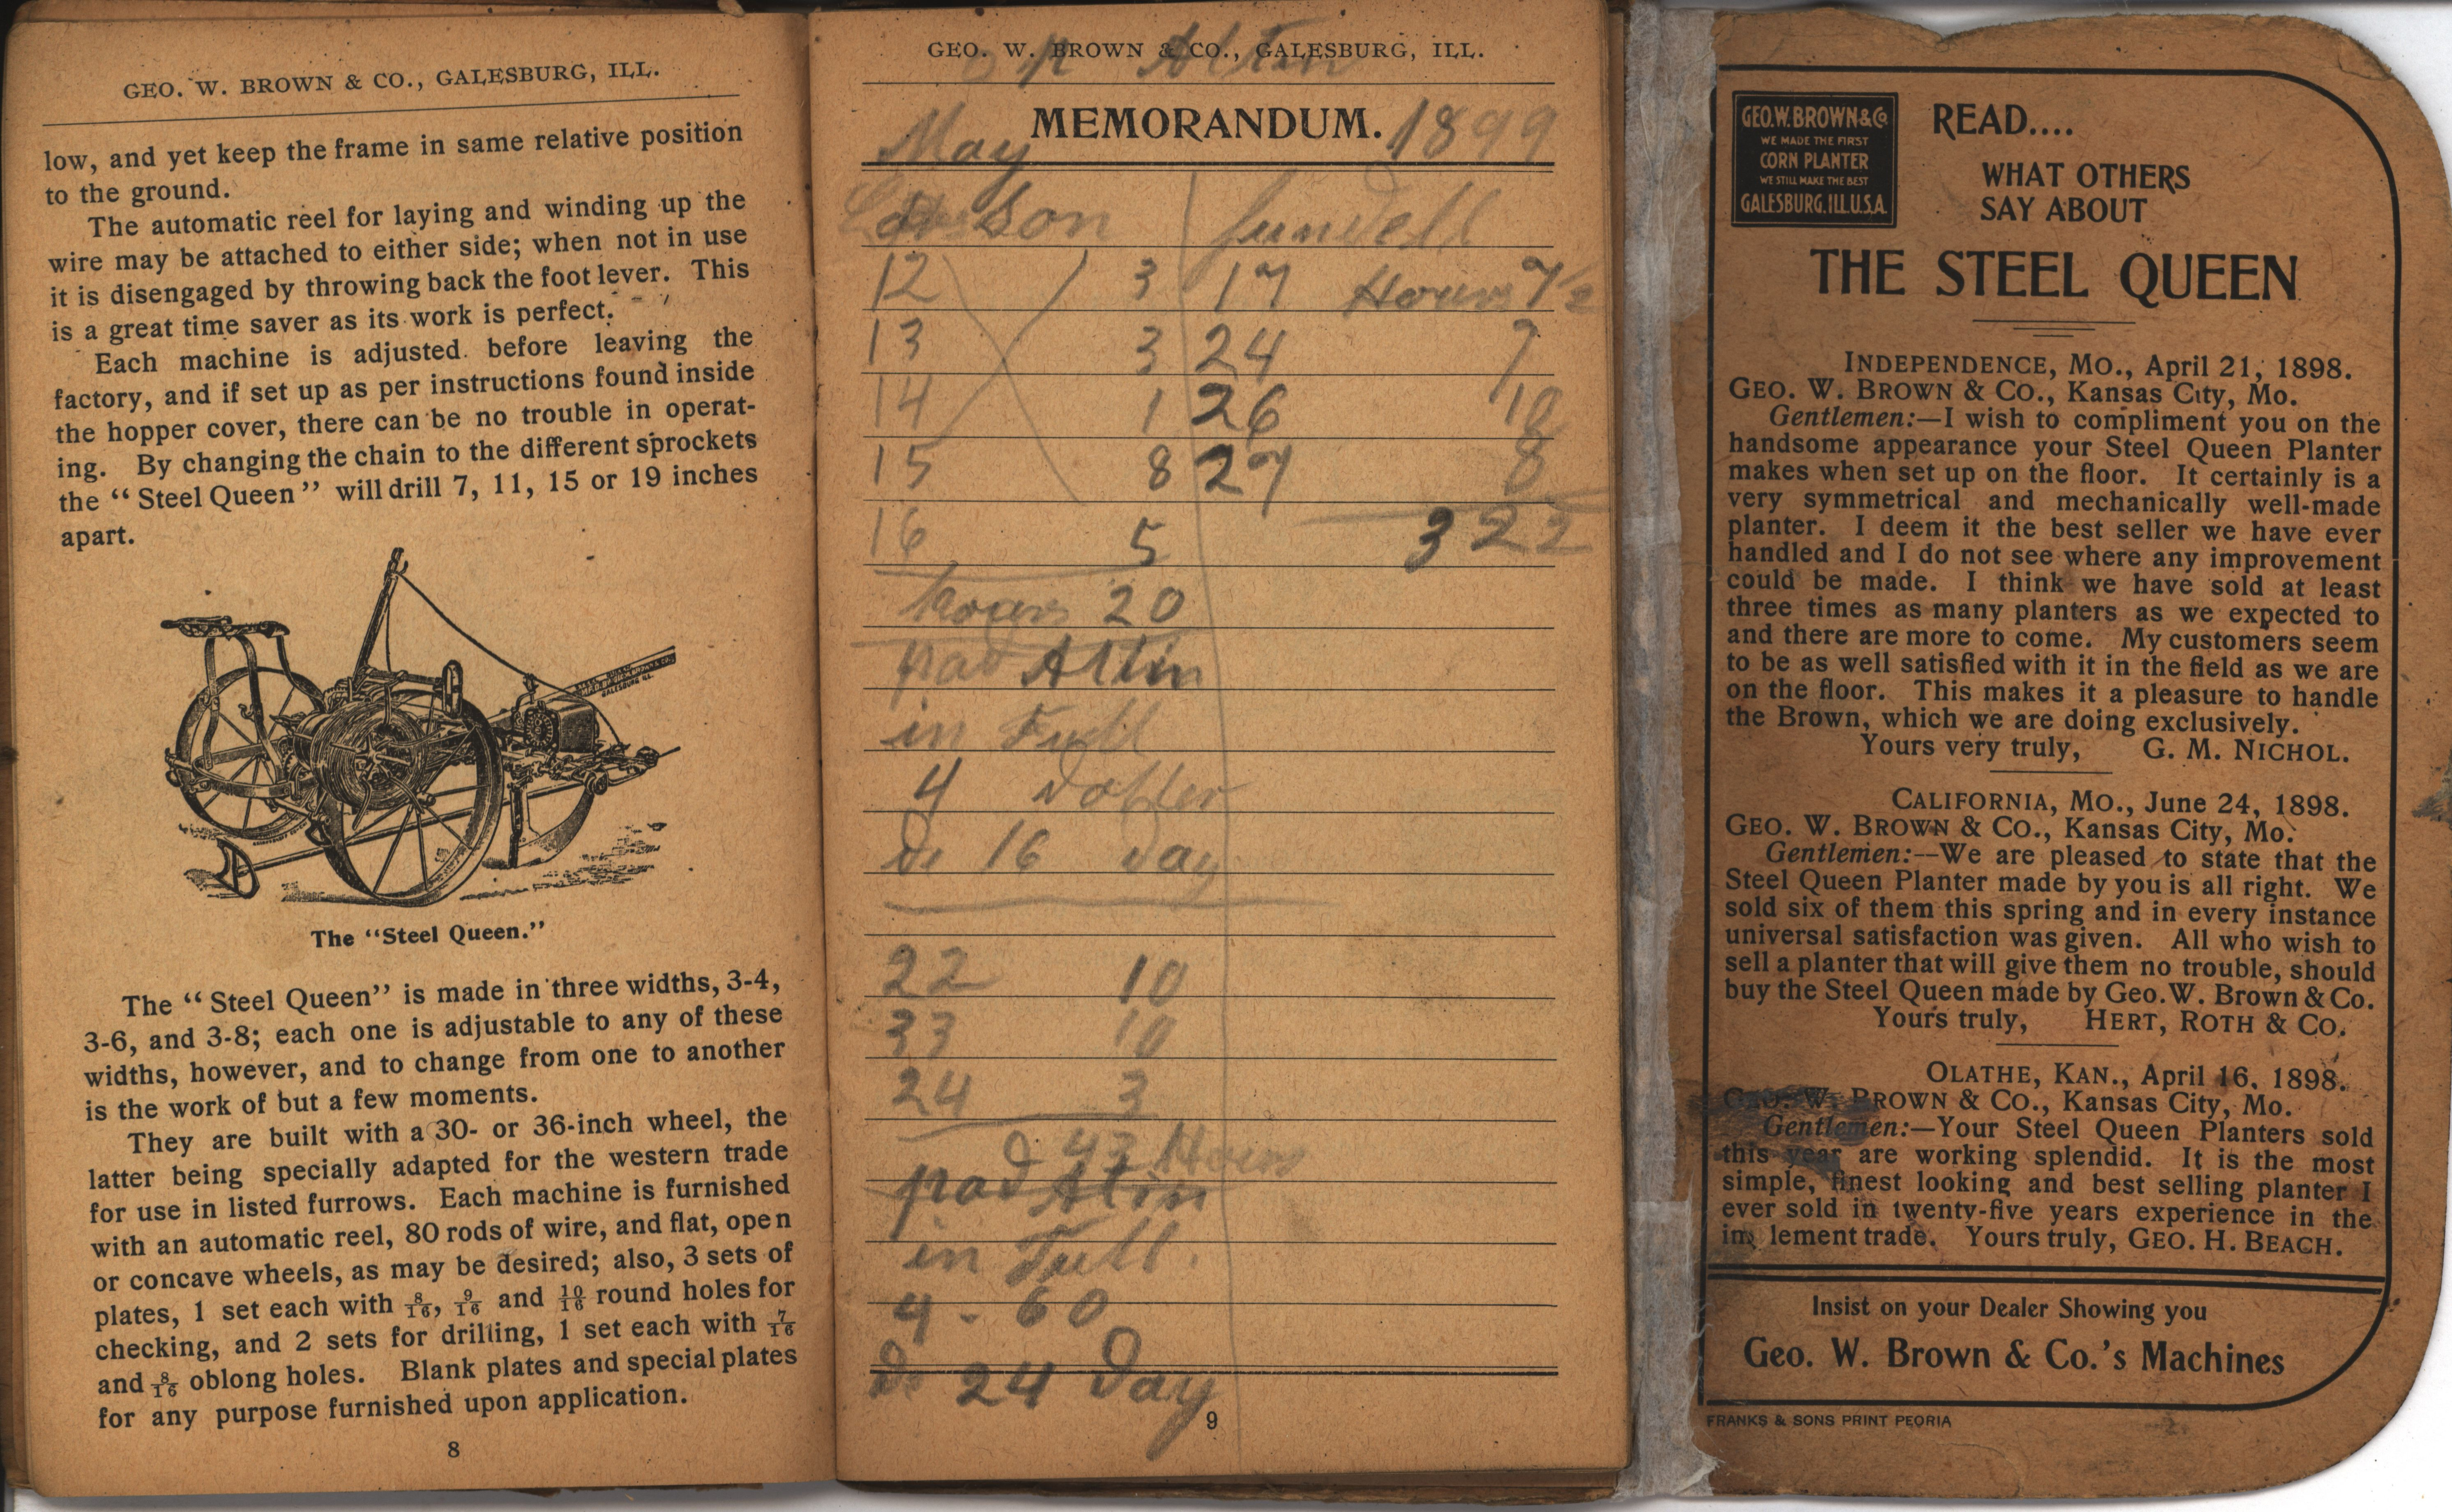 GEO. W. BROWN & CO., GALESBURG, ILL.
low, and yet keep the frame in same relative position
to the ground.
The automatic reel for laying and winding up the
wire may be attached to either side; when not in use
it is disengaged by throwing back the foot lever. This
is a great time saver as its work is perfect.
Each machine is adjusted before leaving the
factory, and if set up as per instructions found inside
the hopper cover, there can be no trouble in operat-
ing. By changing the chain to the different sprockets
the "Steel Queen" will drill 7, 11, 15 or 19 inches
apart.
GALESBURG ILL.
The "Steel Queen."
The "Steel Queen" is made in three widths, 3-4,
3-6, and 3-8; each one is adjustable to any of these
widths, however, and to change from one to another
is the work of but a few moments.
They are built with a 30- or 36-inch wheel, the
latter being specially adapted for the western trade
for use in listed furrows. Each machine is furnished
with an automatic reel, 80 rods of wire, and flat, open
or concave wheels, as may be desired; also, 3 sets of
plates, 1 set each with 8/16, 9/16 and 10/16 round holes for
checking, and 2 sets for drilling, 1 set each with 7/16
and 8/16 oblong holes. Blank plates and special plates
for any purpose furnished upon application.
8
GEO. W. BROWN & CO., GALESBURG, ILL.
MEMORANDUM.
May 1899
son
12 3 17 Hours 7 1/2
13 3 24 7
14 1 26 10
15 8 27 8
16 5 3 22
hours 20
pad Altin
in Full
4 Doller
De 16 Day
22 10
33 10
24 3
43 Hours
pad Altin
in Full.
4-60
De 24 Day
9
GEO. W. BROWN & CO
WE MADE THE FIRST
CORN PLANTER
WE STILL MAKE THE BEST
GALESBURG, ILL. U.S.A.
READ....
WHAT OTHERS
SAY ABOUT
THE STEEL QUEEN
INDEPENDENCE, MO., April 21, 1898.
GEO. W. BROWN & CO., Kansas City, Mo.
Gentlemen:—I wish to compliment you on the
handsome appearance your Steel Queen Planter
makes when set up on the floor. It certainly is a
very symmetrical and mechanically well-made
planter. I deem it the best seller we have ever
handled and I do not see where any improvement
could be made. I think we have sold at least
three times as many planters as we expected to
and there are more to come. My customers seem
to be as well satisfied with it in the field as we are
on the floor. This makes it a pleasure to handle
the Brown, which we are doing exclusively.
Yours very truly, G. M. NICHOL.
CALIFORNIA, MO., June 24, 1898.
GEO. W. BROWN & CO., Kansas City, Mo.
Gentlemen:—We are pleased to state that the
Steel Queen Planter made by you is all right. We
sold six of them this spring and in every instance
universal satisfaction was given. All who wish to
sell a planter that will give them no trouble, should
buy the Steel Queen made by Geo. W. Brown & Co.
Yours truly, HERT, ROTH & CO.
OLATHE, KAN., April 16, 1898.
GEO. W. BROWN & CO., Kansas City, Mo.
Gentlemen:—Your Steel Queen Planters sold
this year are working splendid. It is the most
simple, finest looking and best selling planter I
ever sold in twenty-five years experience in the
im lement trade. Yours truly, GEO. H. BEACH.
Insist on your Dealer Showing you
Geo. W. Brown & Co.'s Machines
FRANKS & SONS PRINT PEORIA